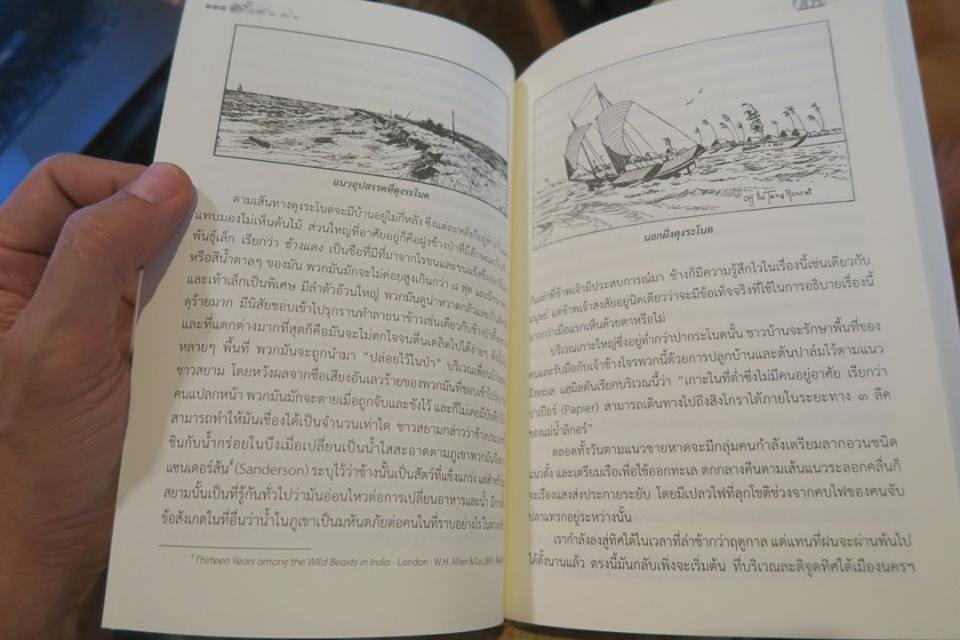 ๑๑๑
แนวอุปสรรคที่ตุงระโนด
ตามเส้นทางตุงระโนดจะมีบ้านอยู่ไม่กี่หลัง ซึ่งแต่ละหลังก็อยู่ห่าง
แทบมองไม่เห็นต้นไม้ ส่วนใหญ่ที่อาศัยอยู่ก็คือฝูงช้างป่าที่มีลักษณะเป็น
พันธุ์เล็ก เรียกว่า ช้างแดง เป็นชื่อที่มีที่มาจากไรขนและขนแข็งซึ่งออกสี
หรือสีน้ำตาลๆ ของมัน พวกมันมักจะไม่ค่อยสูงเกินกว่า ๘ ฟุต และมีหน้า
และเท้าเล็กเป็นพิเศษ มีลำตัวอ้วนใหญ่ พวกมันดูน่าหวาดกลัวและ
ดุร้ายมาก มีนิสัยชอบเข้าไปรุกรานทำลายนาข้าวเช่นเดียวกับช้างป่า
และที่แตกต่างมากที่สุดก็คือมันจะไม่ตกใจจนตื่นเตลิดไปได้ง่ายๆ ดังนั้น
หลายๆ พื้นที่ พวกมันจะถูกนำมา "ปล่อยไว้ในป่า" บริเวณเพื่อน
ชาวสยาม โดยหวังผลจากชื่อเสียงอันเลวร้ายของพวกมันที่ชอบเข้าไป
คนแปลกหน้า พวกมันมักจะตายเมื่อถูกจับและขังไว้ และก็ไม่เคยมี
สามารถทำให้มันเชื่องได้เป็นจำนวนเท่าใด ชาวสยามกล่าวว่าช้างประเภท
ชินกับน้ำกร่อยในบึงเมื่อเปลี่ยนเป็นน้ำใสสะอาดตามภูเขาพวกมันจึง
แซนเดอร์สัน⁴ (Sanderson) ระบุไว้ว่าช้างนั้นเป็นสัตว์ที่แข็งแกร่ง แต่สำหรับ
สยามนั้นเป็นที่รู้กันทั่วไปว่ามันอ่อนไหวต่อการเปลี่ยนอาหารและน้ำ มีการ
ข้อสังเกตในที่อื่นว่าน้ำในภูเขาเป็นมหันตภัยต่อคนในที่ราบอย่างไร ในทาง
⁴ Thirteen Years among the Wild Beasts in India - London : W.H. Allen & Co.,
Off the Tale Ranawt
นอกฝั่งตุงระโนด
กันเท่าที่ข้าพเจ้ามีประสบการณ์มา ช้างก็มีความรู้สึกไวในเรื่องนี้เช่นเดียวกับ
มนุษย์ แต่ข้าพเจ้าสงสัยอยู่นิดเดียวว่าจะมีข้อเท็จจริงที่ใช้ในการอธิบายเรื่องนี้
มากกว่าเมื่อแรกเห็นด้วยตาหรือไม่
บริเวณเกาะใหญ่ซึ่งอยู่ต่ำกว่าปากระโนดนั้น ชาวบ้านจะรักษาพื้นที่ของ
ตนและรับมือกับเจ้าช้างโจรพวกนี้ด้วยการปลูกบ้านและต้นปาล์มไว้ตามแนว
ฝั่งทะเล แฮมิลตันเรียกบริเวณนี้ว่า "เกาะในที่ต่ำซึ่งไม่มีคนอยู่อาศัย เรียกว่า
ปาเปียร์ (Papier) สามารถเดินทางไปถึงสิงโกราได้ภายในระยะทาง ๓ ลีค
ของแม่น้ำลิกอร์"
ตลอดทั้งวันตามแนวชายหาดจะมีกลุ่มคนกำลังเตรียมลากอวนชนิด
แนวตั้ง และเตรียมเรือเพื่อใช้ออกทะเล ตกกลางคืนตามเส้นแนวระลอกคลื่นก็
จะเรืองแสงส่งประกายระยับ โดยมีเปลวไฟที่ลุกโชติช่วงจากคบไฟของคนจับ
ปลาแทรกอยู่ระหว่างนั้น
เรากำลังลงสู่ทิศใต้ในเวลาที่ล่าช้ากว่าฤดูกาล แต่แทนที่ฝนจะผ่านพ้นไป
ได้ตั้งนานแล้ว ตรงนี้มันกลับเพิ่งจะเริ่มต้น ที่บริเวณละติจูดทิศใต้เมืองนครฯ